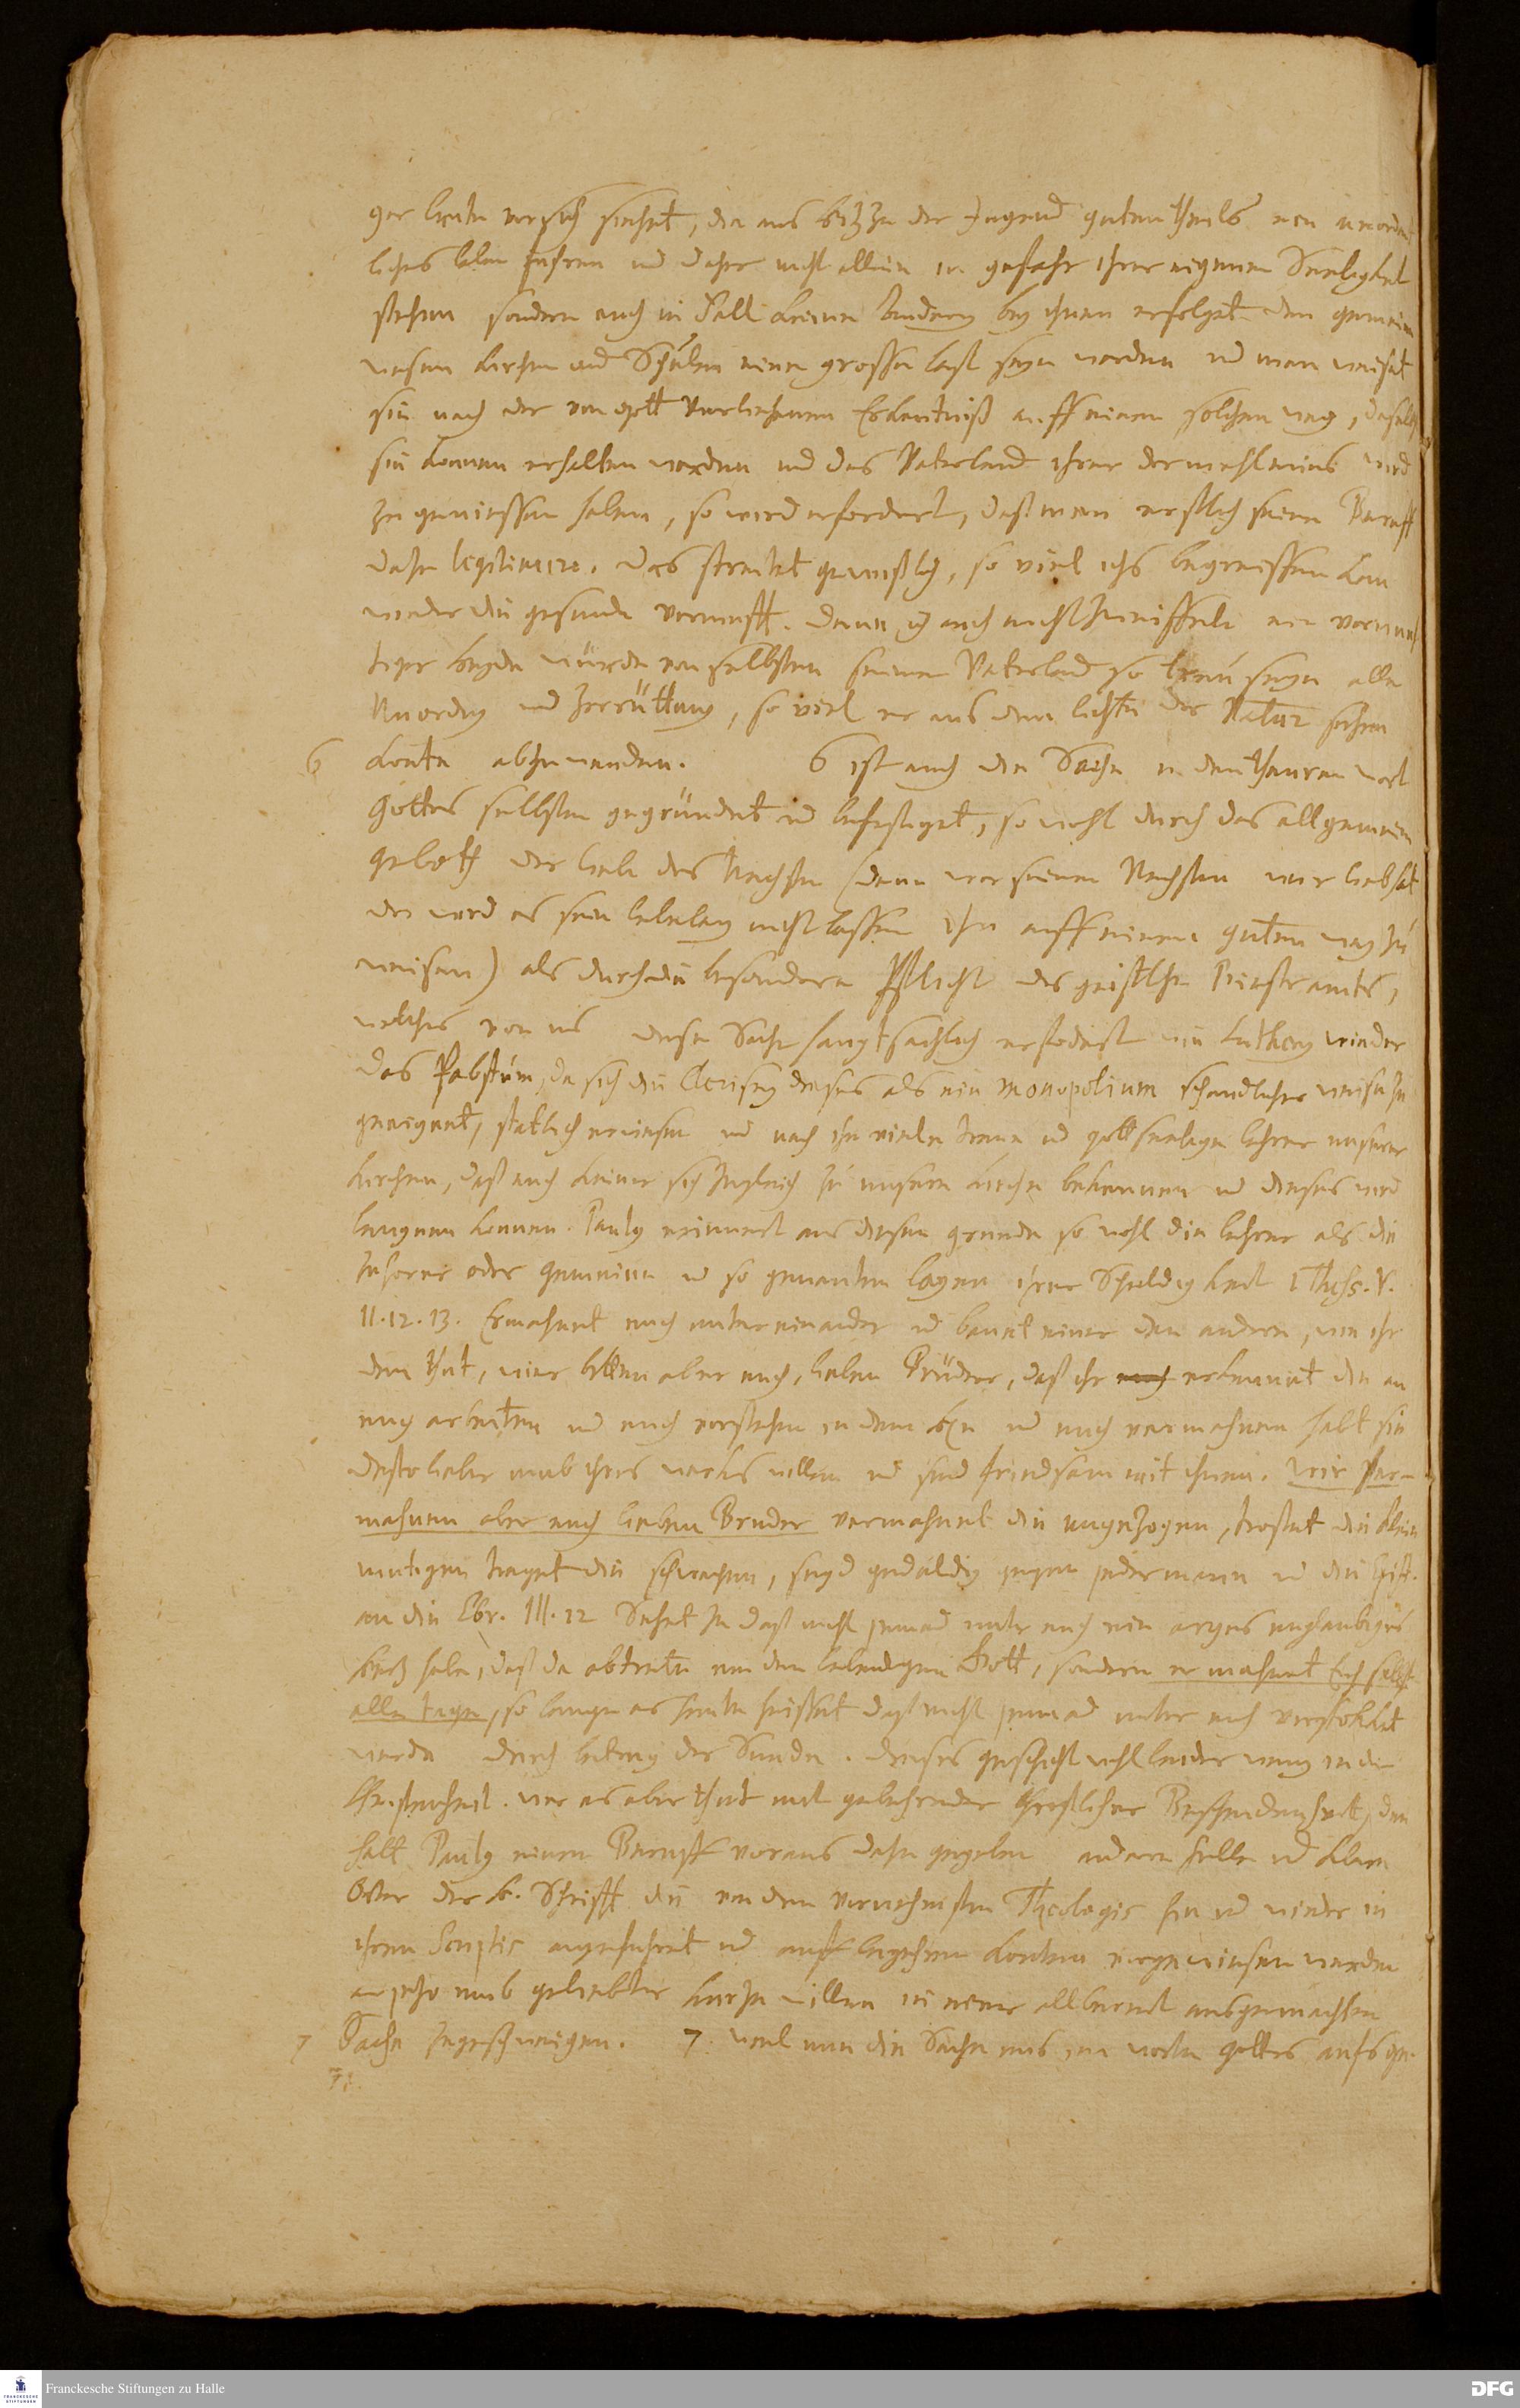 ger leute vor sich siehet, die aus Hitze der Jugend guten theils ein unordent
liches leben fuhren und daher nicht allein in gefahr ihrer eigenen Seeligkeit
stehen sondern auch im Fall keine änderung bey ihnen erfolget dem gemeinen
wesen kirchen und Schulen eine grosse last seyn werden und man weiset
sie nach der von gott verliehenen Erkentniß auff einen solchen weg, daselbst
sie können erhalten werden und das Vaterland ihrer dermahleins wird
zu geniessen haben, so wird erfordert, daß man erstlich seinen Beruff
dazu legitimire. das streitet gewißlich, so viel ichs begreiffen kan
wieder die gesunde vernunfft. denn ich auch nicht zweiffele ein vernunf
tiger heyde würde von selbsten seinem Vaterland so treu seyn alle
Unordnung und Zerrüttung, so viel er aus dem lichte der Natur sehen
6 konte abzuwenden. 6 ist auch die Sache in dem theuren wort
Gottes selbsten gegründet und befestiget, so wohl durch das allgemeine
geboth der liebe des Nechsten (denn wer seinen Nechsten nur lieb hat
der wird es sein lebelang nicht lassen ihn auff einen guten weg zu
weisen) als durch die besondere Pflicht des geistlichen Priesteramts,
welches von uns diese Sache hauptsachlich erfodert wie Lutherus wieder
das Pabstum, da sich die Clerisey dieses als ein monopolium schandlicher weise zu
geeignet, statlich erwiesen und nach ihm viele treue und gottseelige lehrer unserer
kirchen, daß auch keiner sich zugleich zu unserer kirche bekennen und dieses wird
leugnen konnen. Paulus erinnert aus diesem grunde so wohl die lehrer als die
Zuhorer oder gemeine und so genanten layen ihrer Schuldigkeit 1 Thess. V.
11. 12. 13. Ermahnet euch untereinander und bauet einer den andern, wie ihr
denn thut, wier bitten aber euch, lieben Brüder, daß ihr euch erkennet die an
euch arbeiten und euch vorstehen in dem HErrn und euch vermahnen habt sie
desto lieber umb ihres wercks willen und seid friedsam mit ihnen. wir ver-
mahnen aber euch lieben Bruder vermahnet die ungezogen, trostet die klein
mutigen traget die schwachen, seyd gedultig gegen jederman und die Epist.
an die Ebr. III. 12 Sehet zu daß nicht jemand unter euch ein arges unglaubiges
hertz habe, daß da abtrete von dem lebendigen Gott, sondern ermahnet Euch selbst
alle tage, so lange es heute heisset daß nicht jemand unter euch verstokket
werde durch betrug der Sunde. dieses geschicht wohl leider wenig in der
Christenheit. wer es aber thut mit gebuhrender Christlicher Bescheidenheit, dem
hatt Paulus einen Beruff voraus dazu gegeben andere helle und klare
Orter der h. Schrifft die von den vornehmsten Theologis hin und wieder in
ihren Scriptis angefuhret und auff begehren konten vorgewiesen werden
anjetzo umb geliebter kurtze willen in einer allbereit ausgemachten
7 Sache zu geschweigen. 7. weil nun die Sache aus dem worte gottes aufs ge-